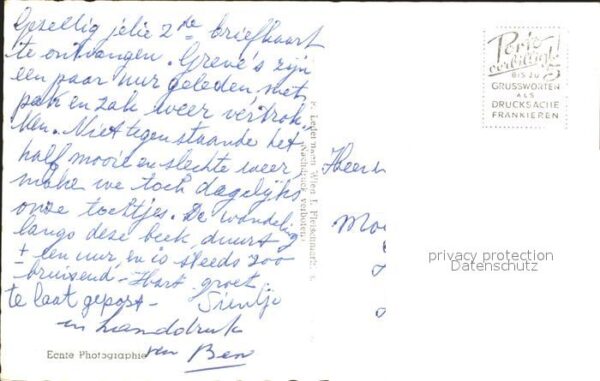 Gezellig jelie 2de briefkaart
te ontvangen. Greve's zijn
een paar uur geleden, met
pak en zak weer vertrok-
ken. Niet tegenstaande het
half mooie en slechte weer
make we toch dagelijks
onze tochtjes. De wandeling
langs deze beek, duurt
± een uur, en is steeds zoo
bruisend - Hart. groet
te laat gepost - Sientje
en handdruk
van Ben
Echte Photographie
F. Ledermann, Wien I, Fleischmarkt
(Nachdruck verboten)
Porto
verbilligt!
BIS ZU
GRUSSWORTEN
ALS
DRUCKSACHE
FRANKIEREN
Heer
privacy protection
Datenschutz